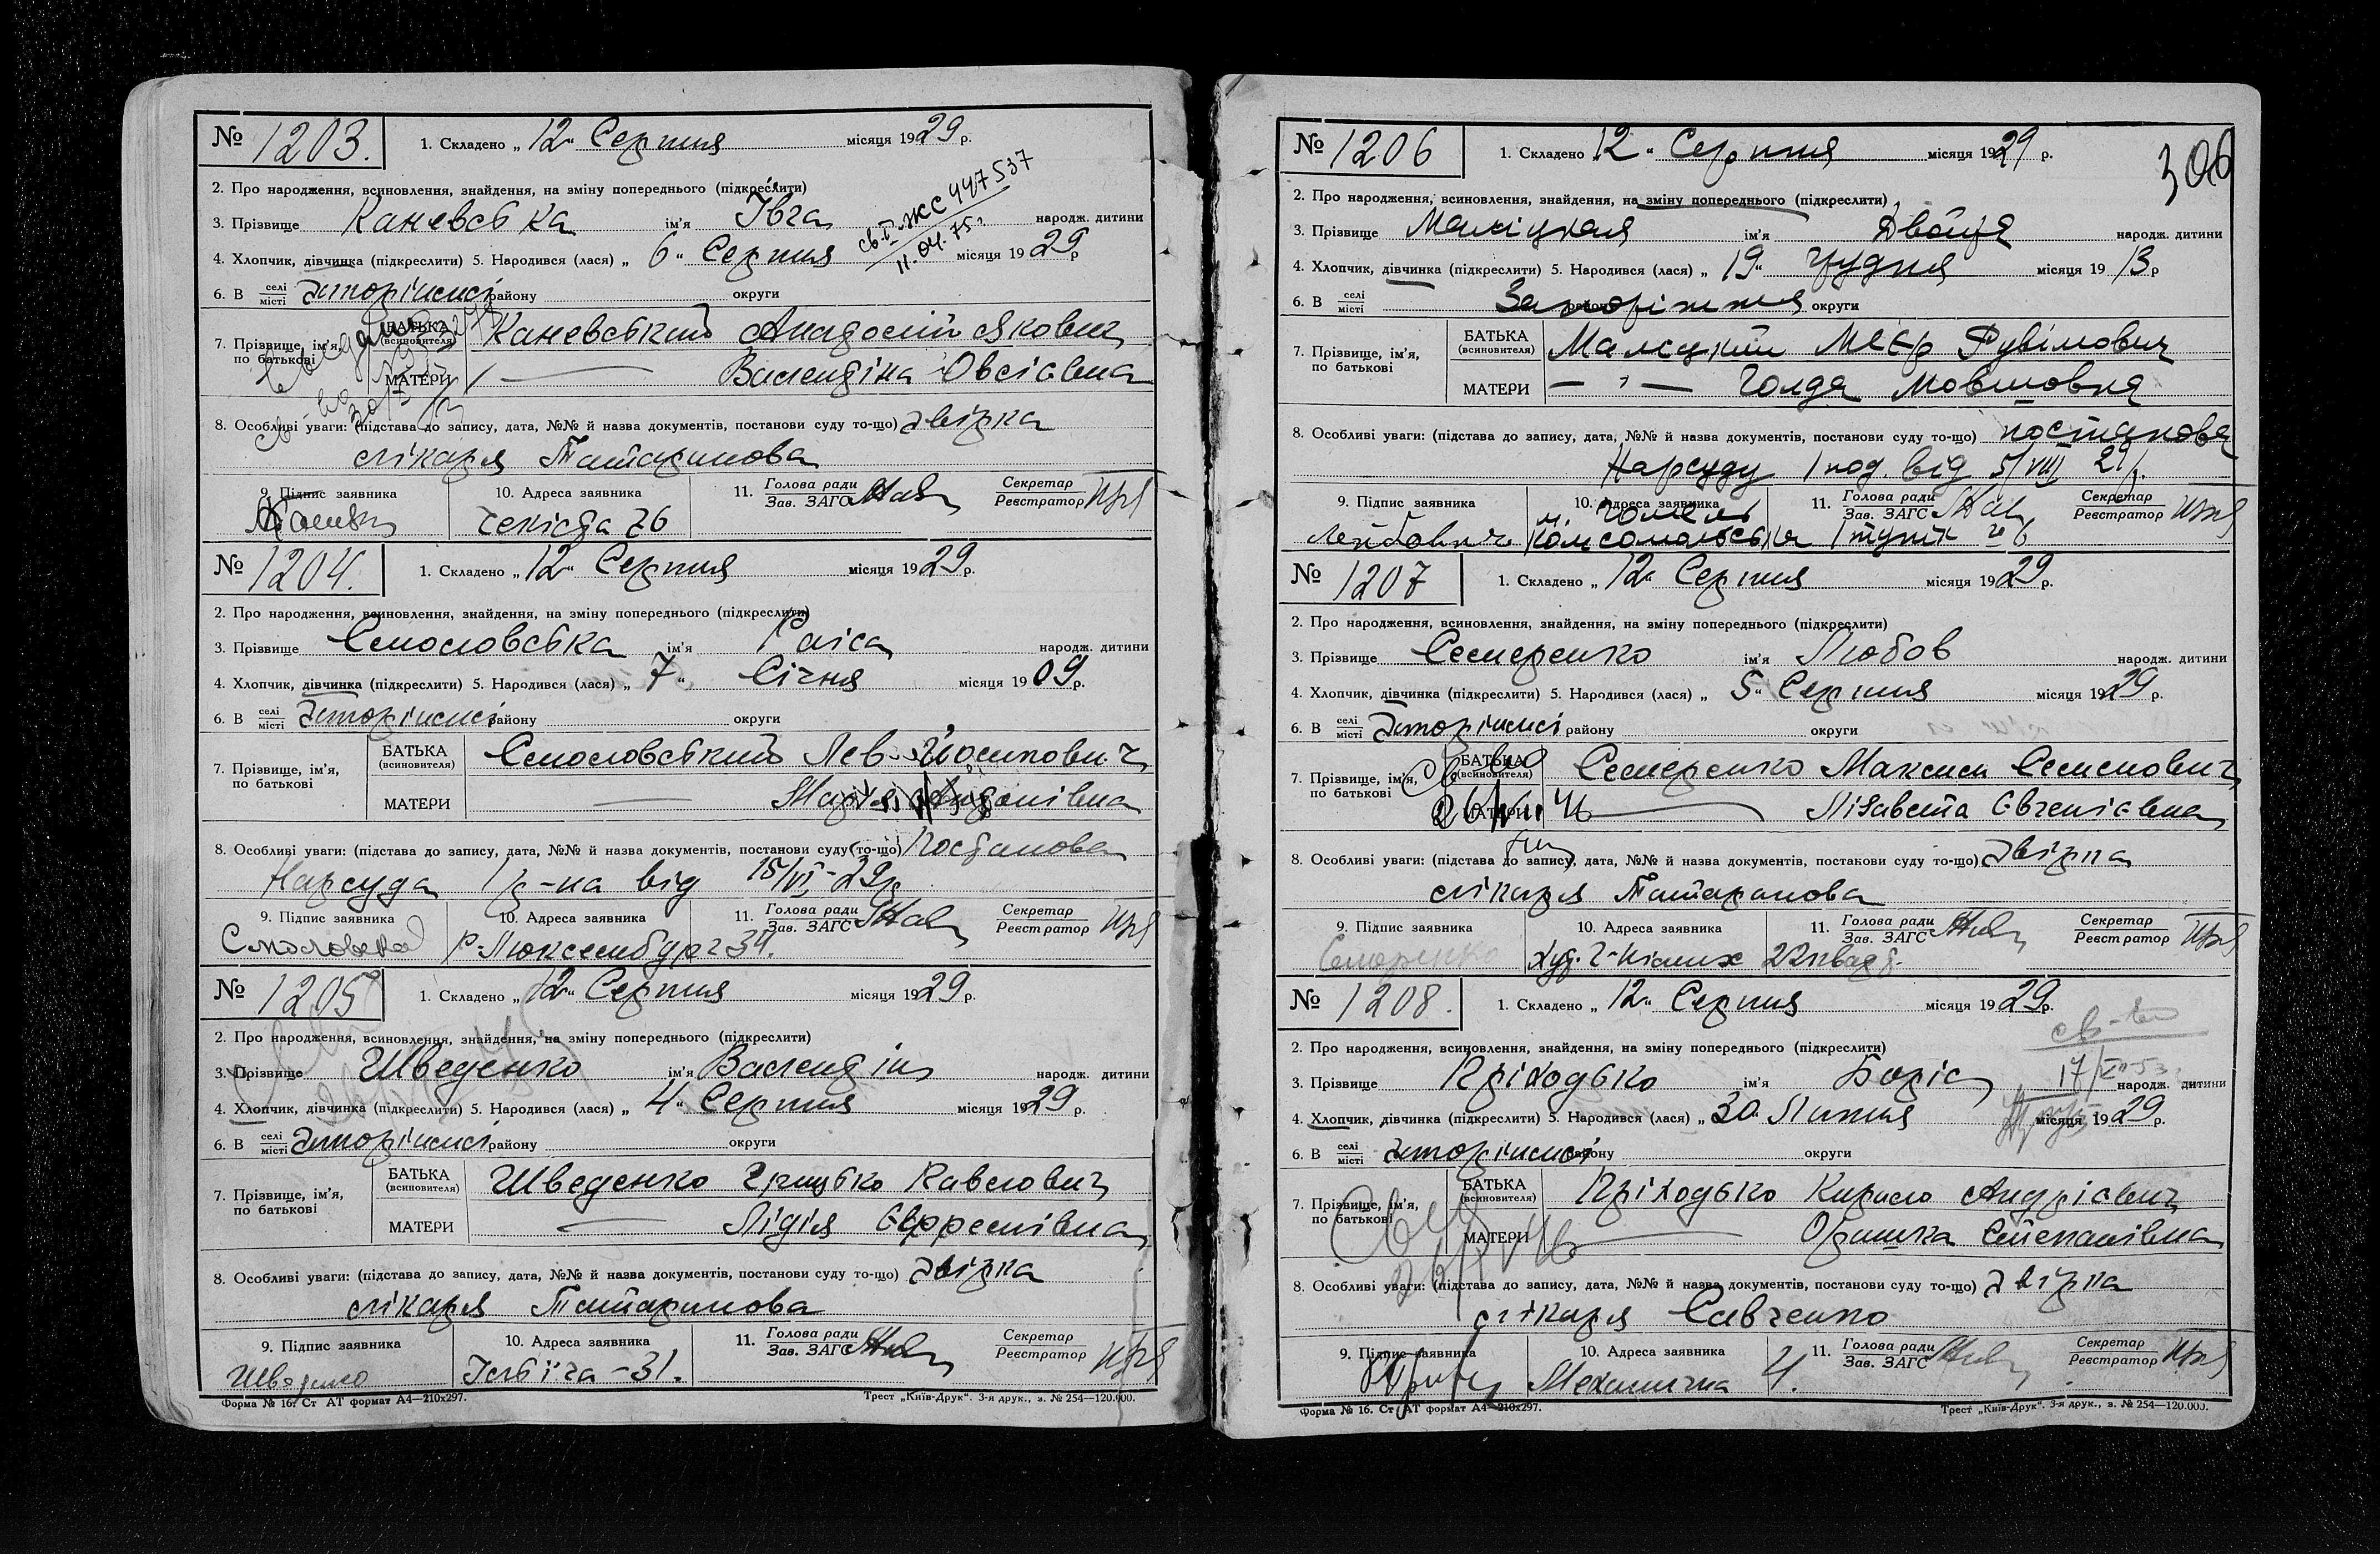 № 1203. 1. Складено „12" Серпня місяця 1929 р.
2. Про народження, всиновлення, знайдення, на зміну попереднього (підкреслити)
св. І-ЖС 447537
11.04.75 г.
3. Прізвище Каневська ім'я Івга народж. дитини
4. Хлопчик, дівчинка (підкреслити) 5. Народився (лася) „6" Серпня місяця 1929 р
6. В селі місті Запоріжжі району округи
7. Прізвище, ім'я, по батькові
БАТЬКА (всиновителя) Каневський Анадолій Якович
МАТЕРИ — Валендіна Овсіевна
8. Особливі уваги: (підстава до запису, дата, №№ й назва документів, постанови суду то-що) звірка
лікаря Татаринова
9. Підпис заявника 10. Адреса заявника 11. Голова ради Зав. ЗАГС Секретар Реєстратор
Чекіста 26
№ 1204. 1. Складено „12" Серпня місяця 1929 р.
2. Про народження, всиновлення, знайдення, на зміну попереднього (підкреслити)
3. Прізвище Смословська ім'я Раіса народж. дитини
4. Хлопчик, дівчинка (підкреслити) 5. Народився (лася) „7" Січня місяця 1909 р.
6. В селі місті Запоріжжі району округи
7. Прізвище, ім'я, по батькові
БАТЬКА (всиновителя) Смословський Лев Йосипович
МАТЕРИ — Марія
8. Особливі уваги: (підстава до запису, дата, №№ й назва документів, постанови суду то-що) Постанова
Нарсуда 1 р-на від 15/VI-29р
9. Підпис заявника 10. Адреса заявника 11. Голова ради Зав. ЗАГС Секретар Реєстратор
Смословска Р-Люксембург 34.
№ 1205 1. Складено „12" Серпня місяця 1929 р.
2. Про народження, всиновлення, знайдення, на зміну попереднього (підкреслити)
3. Прізвище Шведенко ім'я Валендін народж. дитини
4. Хлопчик, дівчинка (підкреслити) 5. Народився (лася) „4" Серпня місяця 1929 р.
6. В селі місті Запоріжжі району округи
7. Прізвище, ім'я, по батькові
БАТЬКА (всиновителя) Шведенко Грицько Павлович
МАТЕРИ — Лідія Єфремівна
8. Особливі уваги: (підстава до запису, дата, №№ й назва документів, постанови суду то-що) звірка
лікаря Татаринова
9. Підпис заявника 10. Адреса заявника 11. Голова ради Зав. ЗАГС Секретар Реєстратор
Шведенко Ілліча-31.
Форма № 16. Ст АТ формат А4—210х297. Трест „Київ-Друк". 3-я друк., з. № 254—120.000.
306
№ 1206 1. Складено „12" Серпня місяця 1929 р.
2. Про народження, всиновлення, знайдення, на зміну попереднього (підкреслити)
3. Прізвище Малицкая ім'я Двойря народж. дитини
4. Хлопчик, дівчинка (підкреслити) 5. Народився (лася) „19" грудня місяця 1913 р
6. В селі місті Запоріжжя району округи
7. Прізвище, ім'я, по батькові
БАТЬКА (всиновителя) Малицкий Меєр Рувімович
МАТЕРИ — " — Голда Мовшовна
8. Особливі уваги: (підстава до запису, дата, №№ й назва документів, постанови суду то-що) постанова
Нарсуду 1 под. від 5/VIII 29 р.
9. Підпис заявника 10. Адреса заявника 11. Голова ради Зав. ЗАГС Секретар Реєстратор
м. Гомель
Лейбович Комсомольська 1 тупік № 6
№ 1207 1. Складено „12" Серпня місяця 1929 р.
2. Про народження, всиновлення, знайдення, на зміну попереднього (підкреслити)
3. Прізвище Семеренко ім'я Любов народж. дитини
4. Хлопчик, дівчинка (підкреслити) 5. Народився (лася) „5" Серпня місяця 1929 р.
6. В селі місті Запоріжжі району округи
7. Прізвище, ім'я, по батькові
БАТЬКА (всиновителя) Семеренко Максим Семенович
МАТЕРИ — Лізавета Євгеніевна
8. Особливі уваги: (підстава до запису, дата, №№ й назва документів, постанови суду то-що) звірка
лікаря Татаринова
9. Підпис заявника 10. Адреса заявника 11. Голова ради Зав. ЗАГС Секретар Реєстратор
Семеренко 22 квар
№ 1208. 1. Складено „12" Серпня місяця 1929 р.
св-во
2. Про народження, всиновлення, знайдення, на зміну попереднього (підкреслити)
3. Прізвище Пріходько ім'я Боріс народж. дитини
4. Хлопчик, дівчинка (підкреслити) 5. Народився (лася) „30" Липня місяця 1929 р.
6. В селі місті Запоріжжі району округи
7. Прізвище, ім'я, по батькові
БАТЬКА (всиновителя) Пріходько Кирило Андріевич
МАТЕРИ — Оришка Степанівна
8. Особливі уваги: (підстава до запису, дата, №№ й назва документів, постанови суду то-що) звірка
лікаря Савченко
9. Підпис заявника 10. Адреса заявника 11. Голова ради Зав. ЗАГС Секретар Реєстратор
Механична 4.
Форма № 16. Ст АТ формат А4—210х297. Трест „Київ-Друк". 3-я друк., з. № 254—120.000.